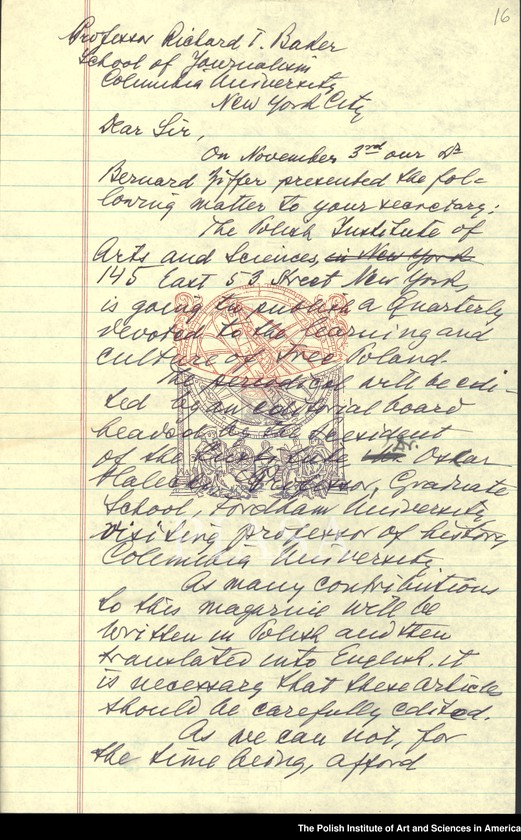 16
Professor Richard T. Baker
School of Journalism
Columbia University
New York City
Dear Sir,
On November 3rd our Dr
Bernard Ziffer presented the fol-
lowing matter to your secretary:
The Polish Institute of
Arts and Sciences, in New York
145 East 53 Street New York,
is going to publish a Quarterly
devoted to the learning and
culture of Free Poland.
The periodical will be edi-
ted by an editorial board
headed by the president
of the Institute Dr. Oscar
Halecki, Professor, Graduate
School, Fordham University,
visiting professor of history,
Columbia University
As many contributions
to this magazine will be
written in Polish and then
translated into English, it
is necessary that these article
should be carefully edited.
As we can not, for
the time being, afford
PIASA
The Polish Institute of Arts and Sciences in America